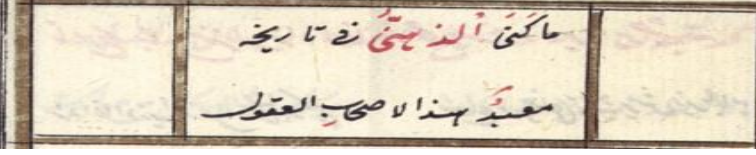 ما كنى الذهنى فى تاريخه
معبد هذا لاصحاب العقول